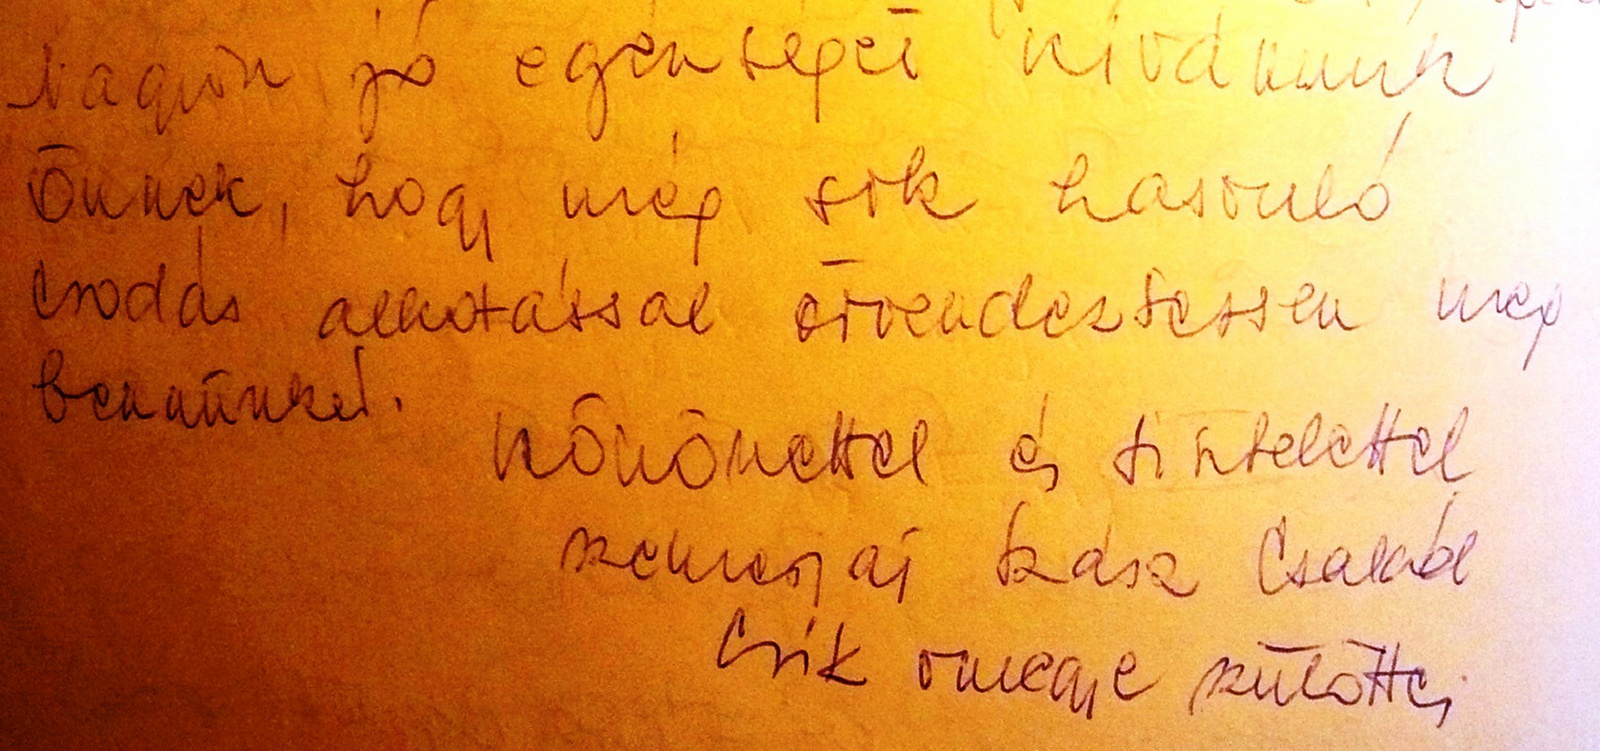 Nagyon jó egészséget kívánunk
Önnek, hogy még sok hasonló
csodás alkotással örvendeztessen meg
bennünket.
Köszönettel és tisztelettel
szemerjai Szász Család
Csík vmegye szülöttei